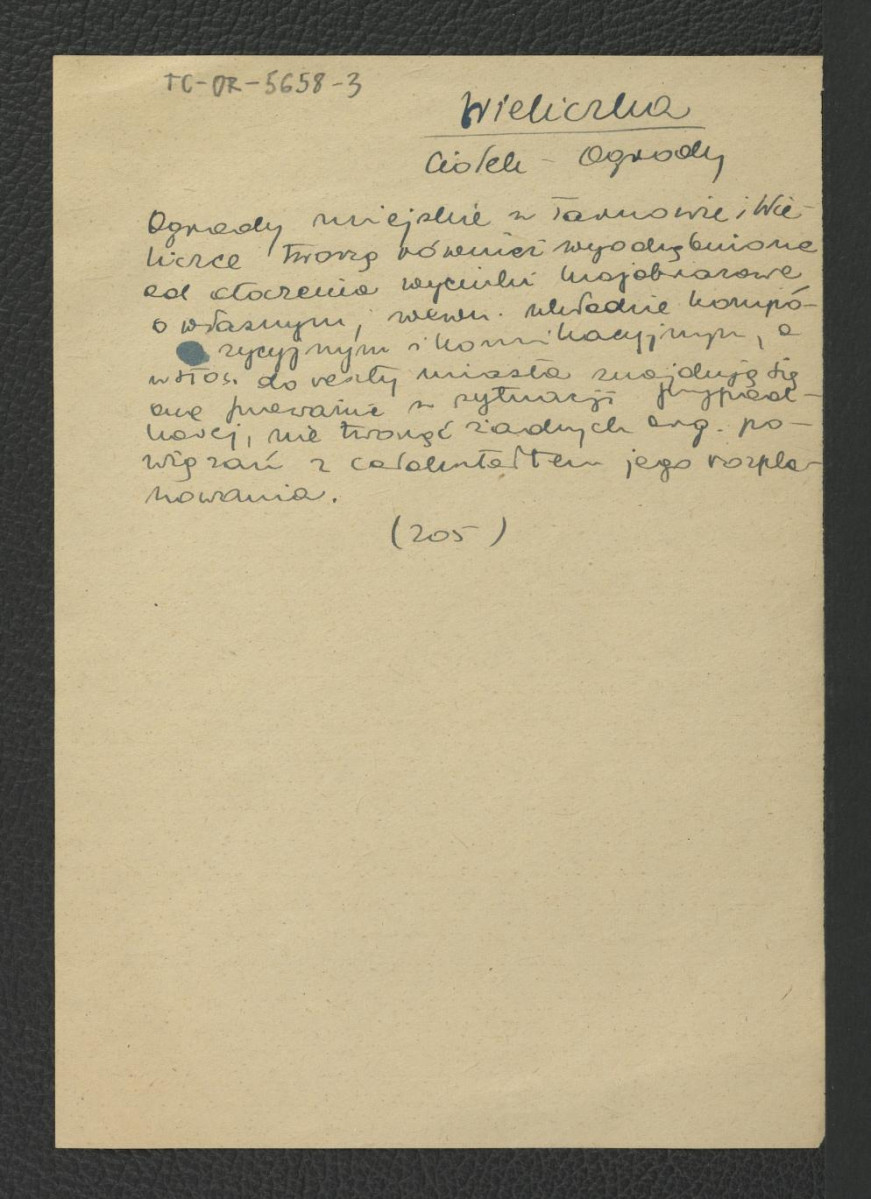 TC-OR-5658-3
Wieliczka
Ciołek - Ogrody
Ogrody miejskie w Tarnowie i Wie-
liczce tworzą również wyodrębnione
od otoczenia wycinki krajobrazowe
o własnym, wewn. układzie kompo-
zycyjnym i komunikacyjnym, a
w stos. do reszty miasta znajdują się
one przeważnie w sytuacji przypad-
kowej, nie tworząc żadnych org. po-
wiązań z całokształtem jego rozpla-
nowania.
(205)